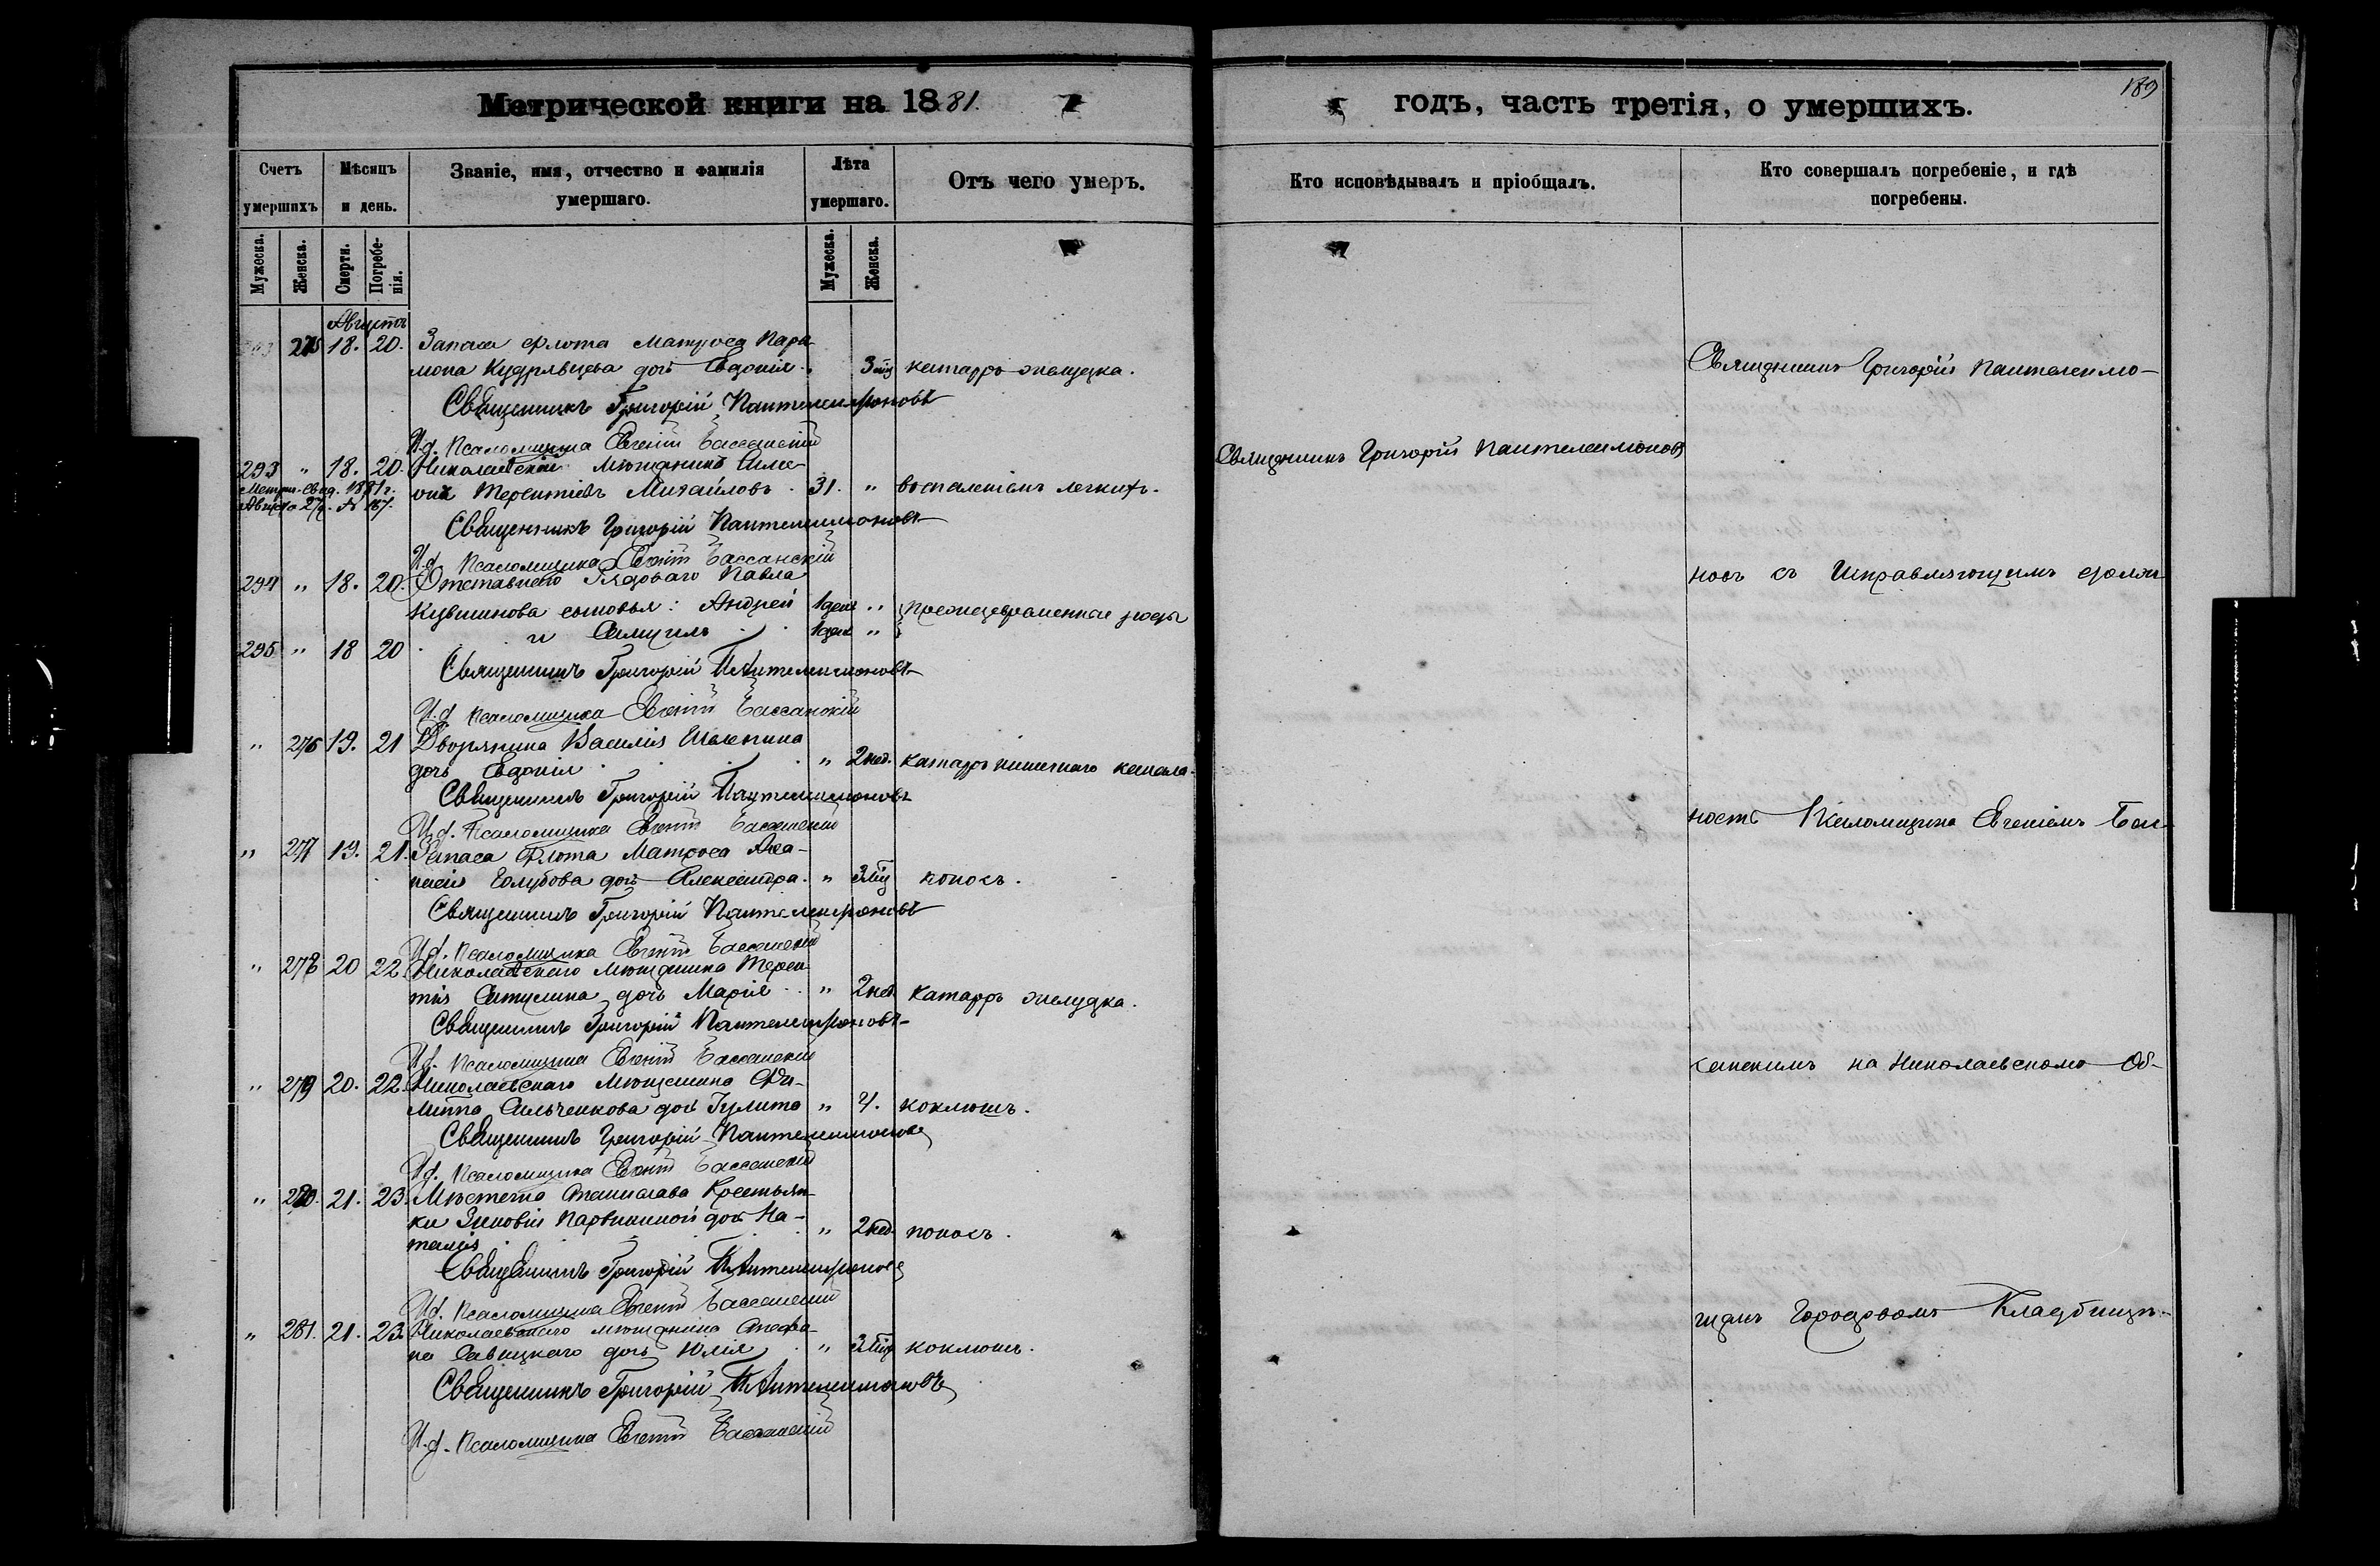 Метрической книги на 1881.
годъ, часть третія, о умершихъ.
189
Счетъ умершихъ
Мѣсяцъ и день.
Званіе, имя, отчество и фамилія умершаго.
Лѣта умершаго.
Отъ чего умеръ.
Кто исповѣдывалъ и пріобщалъ.
Кто совершалъ погребеніе, и гдѣ погребены.
Мужеска.
Женска.
Смерти.
Погребенія.
Мужеска.
Женска.
Августъ
275 18. 20. Запаса флота Матроса Пара-
мона Кудрявцева дочь Евдокія. 3 мѣс катарръ желудка.
Священникъ Григорій Пантелеимоновъ
И.д. Псаломщика Евгеній Бассанскій
293 " 18. 20. Николаевскій мѣщанинъ Симе-
Метри. свид. 1881 г. онъ Терентіевъ Михайловъ. 31. " воспаленіемъ легкихъ.
Августа 27д. № 167.
Священникъ Григорій Пантелеимоновъ
И.д. Псаломщика Евгеній Бассанскій
294 " 18. 20. Отставнаго Рядоваго Павла
Кувшинова сыновья: Андрей 1 день " преждевременные роды
295 " 18 20 и Самуилъ 1 день "
Священникъ Григорій Пантелеимоновъ
И.д. Псаломщика Евгеній Бассанскій
" 276 19. 21 Дворянина Василія
дочь Евдокія " 2 нед. катарръ кишечнаго канала.
Священникъ Григорій Пантелеимоновъ
И.д. Псаломщика Евгеній Бассанскій
" 277 19. 21. Запаса флота Матроса Аѳа-
насія Голубова дочь Александра. " 3 мѣс поносъ.
Священникъ Григорій Пантелеимоновъ
И.д. Псаломщика Евгеній Бассанскій
" 278 20 22. Николаевскаго мѣщанина Терен-
тія дочь Марія " 2 нед катарръ желудка.
Священникъ Григорій Пантелеимоновъ
И.д. Псаломщика Евгеній Бассанскій
" 279 20. 22. Николаевскаго мѣщанина
Сильченкова дочь Іулита " 4. коклюшъ.
Священникъ Григорій Пантелеимоновъ
И.д. Псаломщика Евгеній Бассанскій
" 280. 21. 23. Мѣстечка Станислава Крестьян-
ки Зиновіи дочь На-
талія " 2 нед. поносъ.
Священникъ Григорій Пантелеимоновъ
И.д. Псаломщика Евгеній Бассанскій
" 281. 21. 23. Николаевскаго мѣщанина Стефа-
на Савицкаго дочь Юлія " 3 мѣс коклюшъ.
Священникъ Григорій Пантелеимоновъ
И.д. Псаломщика Евгеній Бассанскій
Священникъ Григорій Пантелеимоновъ
Священникъ Григорій Пантелеимо-
новъ съ Исправляющимъ должн
ность Псаломщика Евгеніемъ Бас-
санскимъ на Николаевскомъ Об-
щемъ Городовомъ Кладбищѣ.